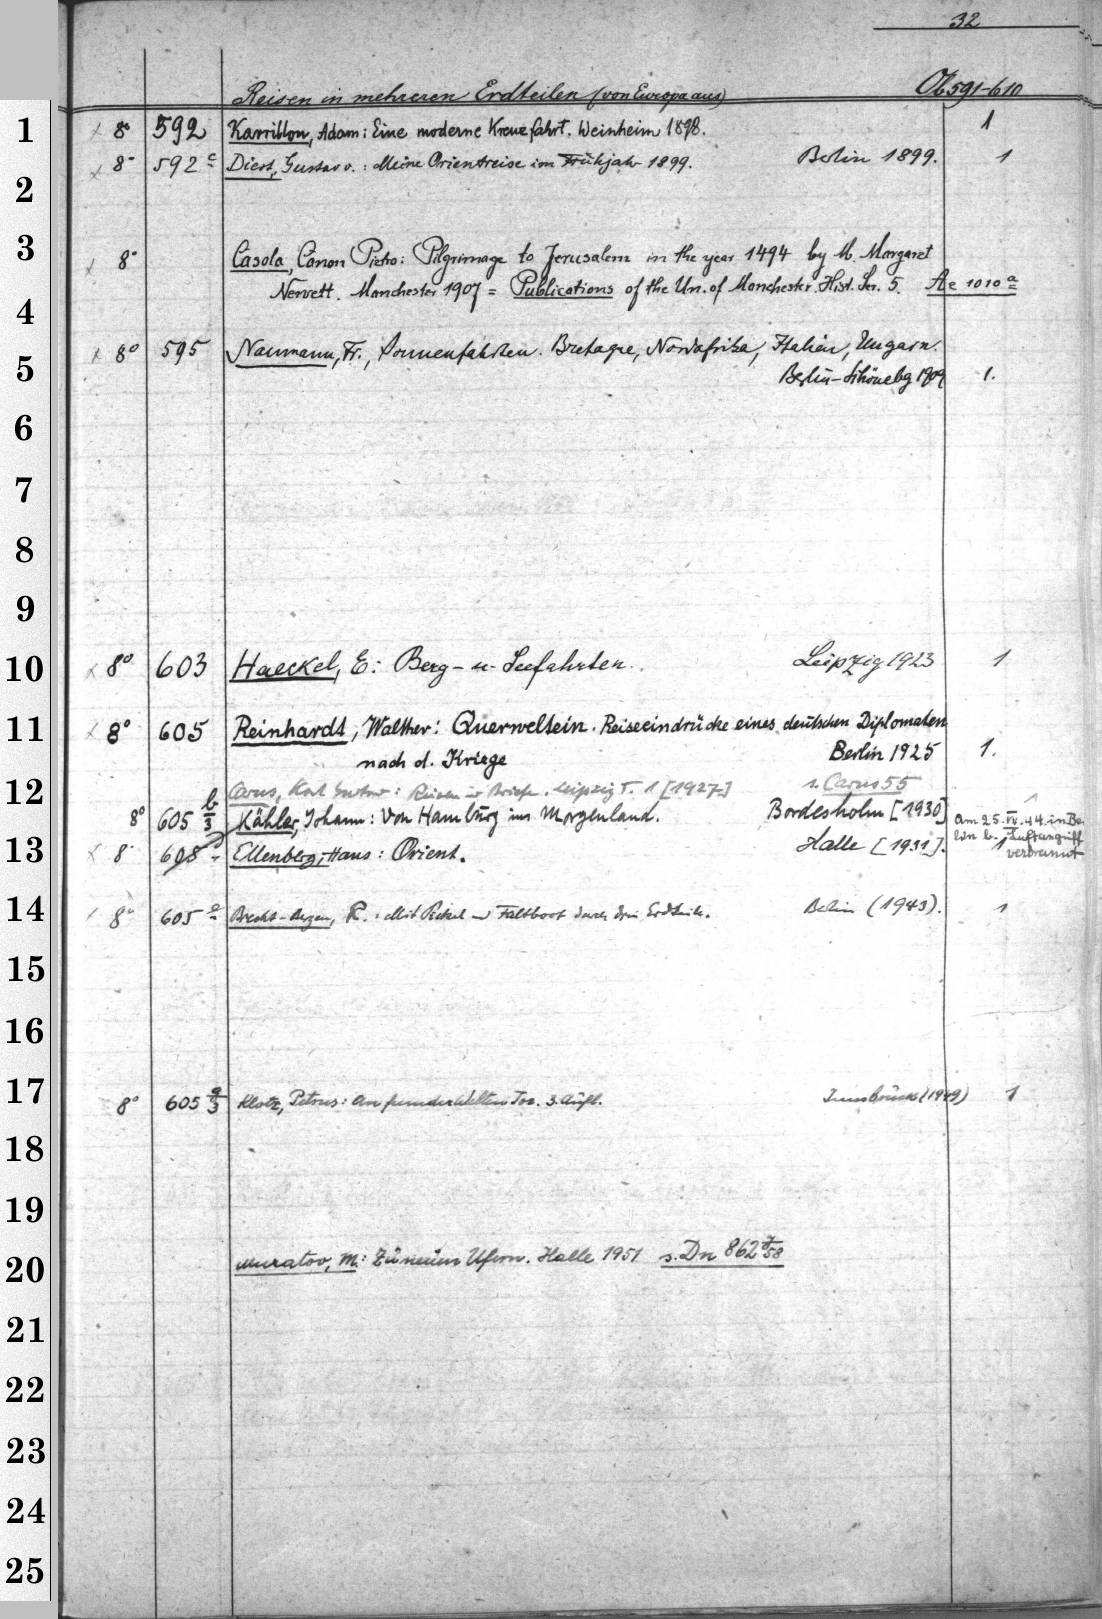 32
Reisen in mehreren Erdteilen (von Europa aus) Ob 591-610
1 × 8° 592 Karrillon, Adam: Eine moderne Kreuzfahrt. Weinheim 1898. 1
× 8° 592 c Diest, Gustav v.: Meine Orientreise im Frühjahr 1899. Berlin 1899. 1
2
3 × 8° Casola, Canon Pietro: Pilgrimage to Jerusalem in the year 1494 by M. Margaret
Newett. Manchester 1907 = Publications of the Un. of Manchester. Hist. Ser. 5. Ae 1010 a
4
5 × 8° 595 Naumann, Fr., Sonnenfahrten. Bretagne, Nordafrika, Italien, Ungarn.
Berlin-Schönebg 1909 1.
6
7
8
9
10 × 8° 603 Haeckel, E: Berg- u. Seefahrten. Leipzig 1923 1
11 × 8° 605 Reinhardt, Walther: Querweltein. Reiseeindrücke eines deutschen Diplomaten
nach d. Kriege Berlin 1925 1.
12 Carus, Karl Gustav: Reisen Briefe. Leipzig T. 1 [1927-] s. Carus 55
8° 605 b/3 Kähler, Johann: Von Hamburg ins Morgenland. Bordesholm [1930] am 25. IV. 44. in Ber
lin b. Luftangriff
verbrannt
13 × 8° 605 Ellenberg, Hans: Orient. Halle [1931]. 1
14 8° 605 e Brecht-Bergen, R.: Mit Pickel u. Faltboot durch drei Erdteile. Berlin (1943). 1
15
16
17 8° 605 g/3 Klotz, Petrus: An fremder Welten Tor. 3. Aufl. Innsbruck (1949) 1
18
19
20 Muratov, M.: Zu neuen Ufern. Halle 1951 s. Dn 862 /58
21
22
23
24
25